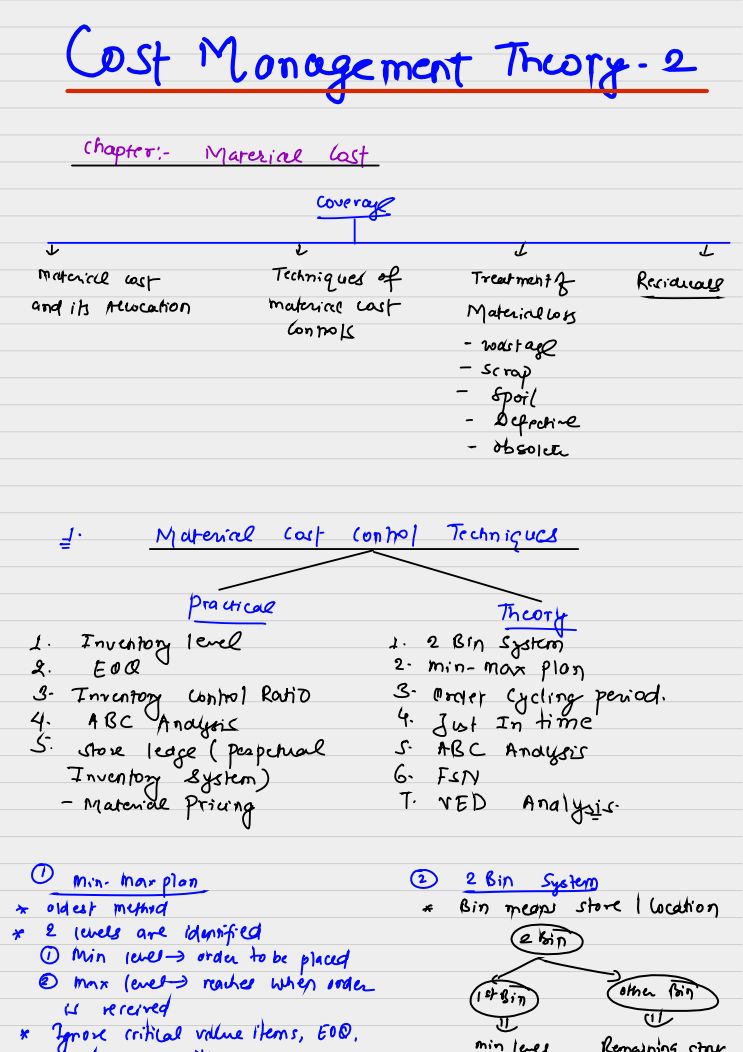 Cost Management Theory - 2
Chapter:- Material Cost
Coverage
Material cost
and its Allocation
Techniques of
material cost
Controls
Treatment of
Material loss
- wastage
- Scrap
- Spoil
- Defective
- obsolete
Residuals
1. Material Cost Control Techniques
Practical
1. Inventory level
2. EOQ
3. Inventory Control Ratio
4. ABC Analysis
5. Store ledge ( perpetual
Inventory System)
- Material Pricing
Theory
1. 2 Bin System
2. min-max plan
3. Order Cycling period.
4. Just In time
5. ABC Analysis
6. FSN
7. VED Analysis.
① Min-Max plan
* oldest method
* 2 levels are identified
① Min level → order to be placed
② max level → reaches when order
is received
* Ignore critical value items, EOQ,
② 2 Bin System
* Bin means store / location
2 Bin
1st Bin
other Bin
min level
Remaining